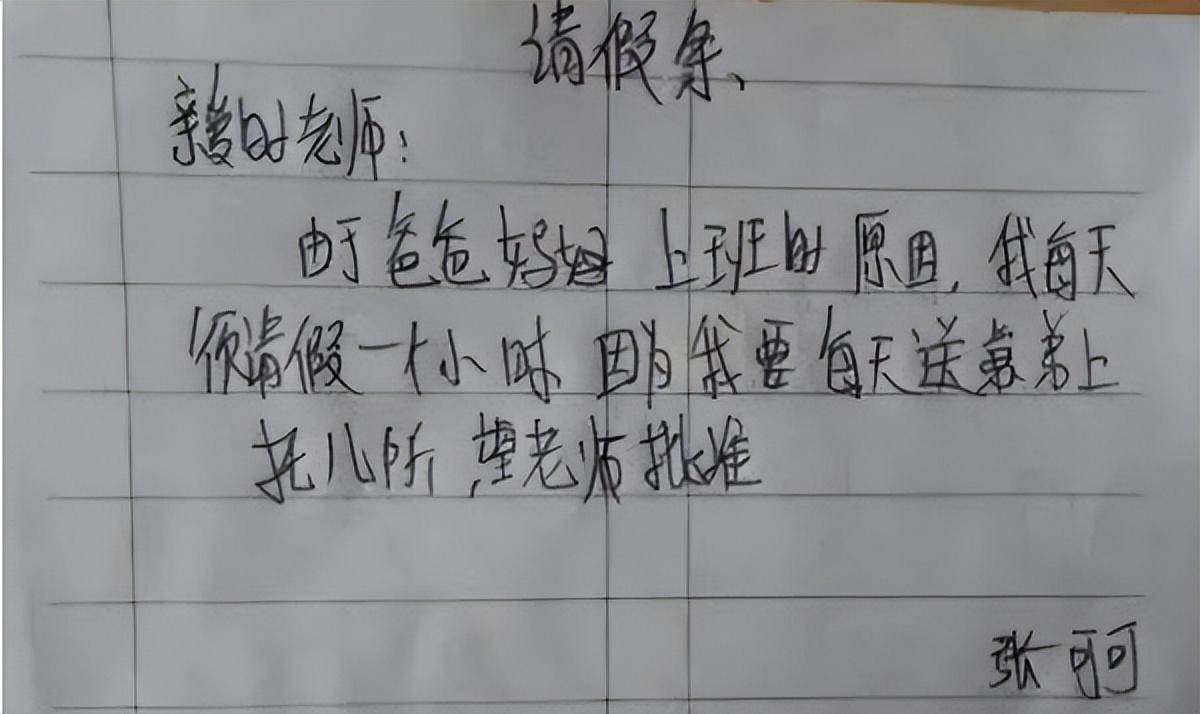 请假条、
亲爱的老师：
由于爸爸妈妈 上班的 原因，我每天
须请假一个小时 因为我要每天送弟弟上
托儿所，望老师批准
张可可